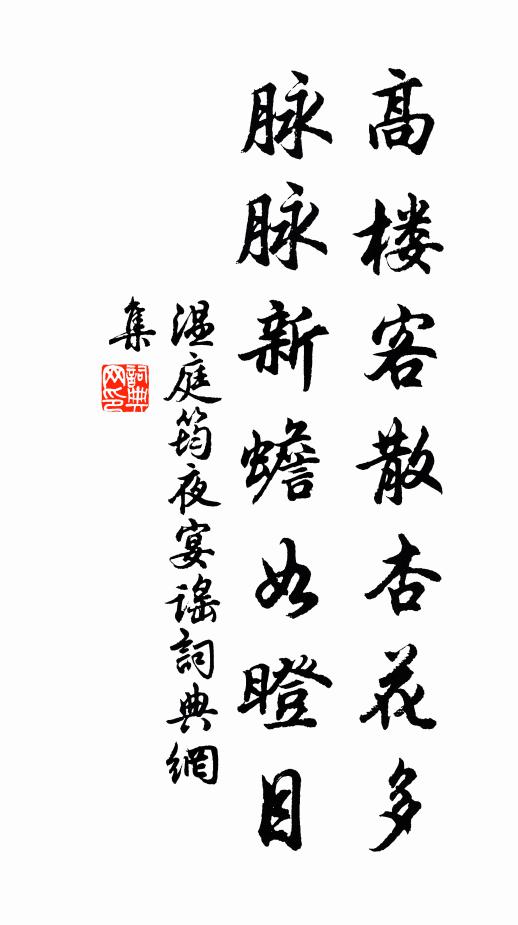 高楼客散杏花多
脉脉新蟾如瞪目
温庭筠夜宴谣詞典網
集
詞典
网印